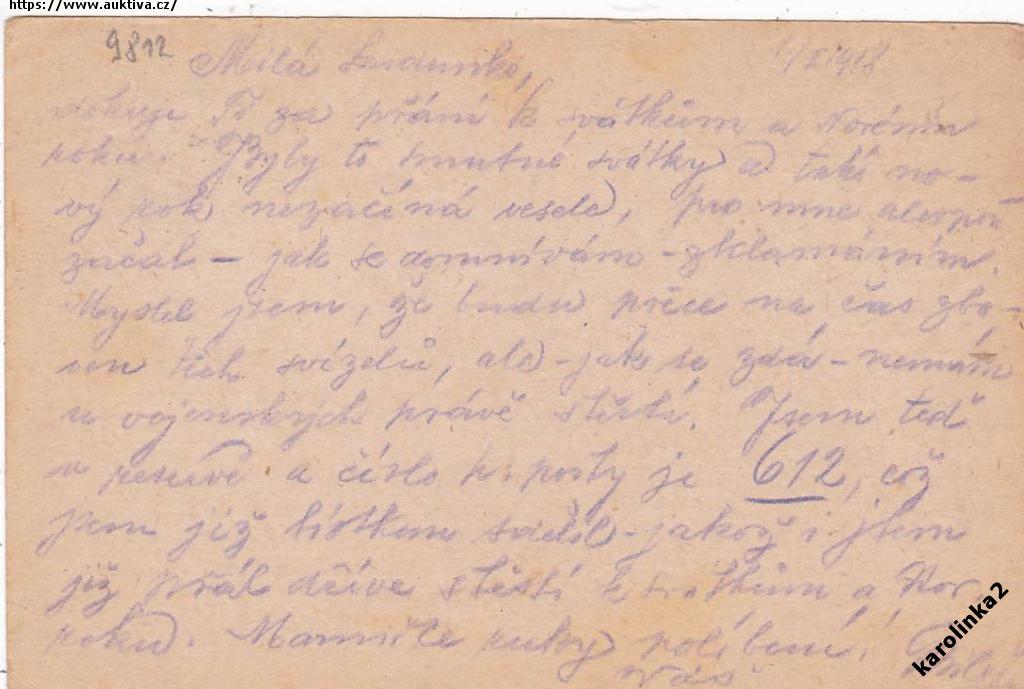 https://www.auktiva.cz/
9812
Milá 1/I 1918
děkuji Ti za přání k svátkům a Novému
roku. Byly to smutné svátky a také no-
vý rok nezačíná vesele, pro mne alespoň
začal - jak se domnívám - zklamáním.
Myslel jsem, že budu přece na čas zba-
ven těch svízelů, ale - jak se zdá - nemám
u vojenských právě štěstí. Jsem teď
v reservě a číslo p. pošty je 612, což
jsem již lístkem sdělil - jakož i jsem
již přál dříve štěstí k svátkům a Nov.
roku. Mamince ruky políbení!
Váš
karolinka2